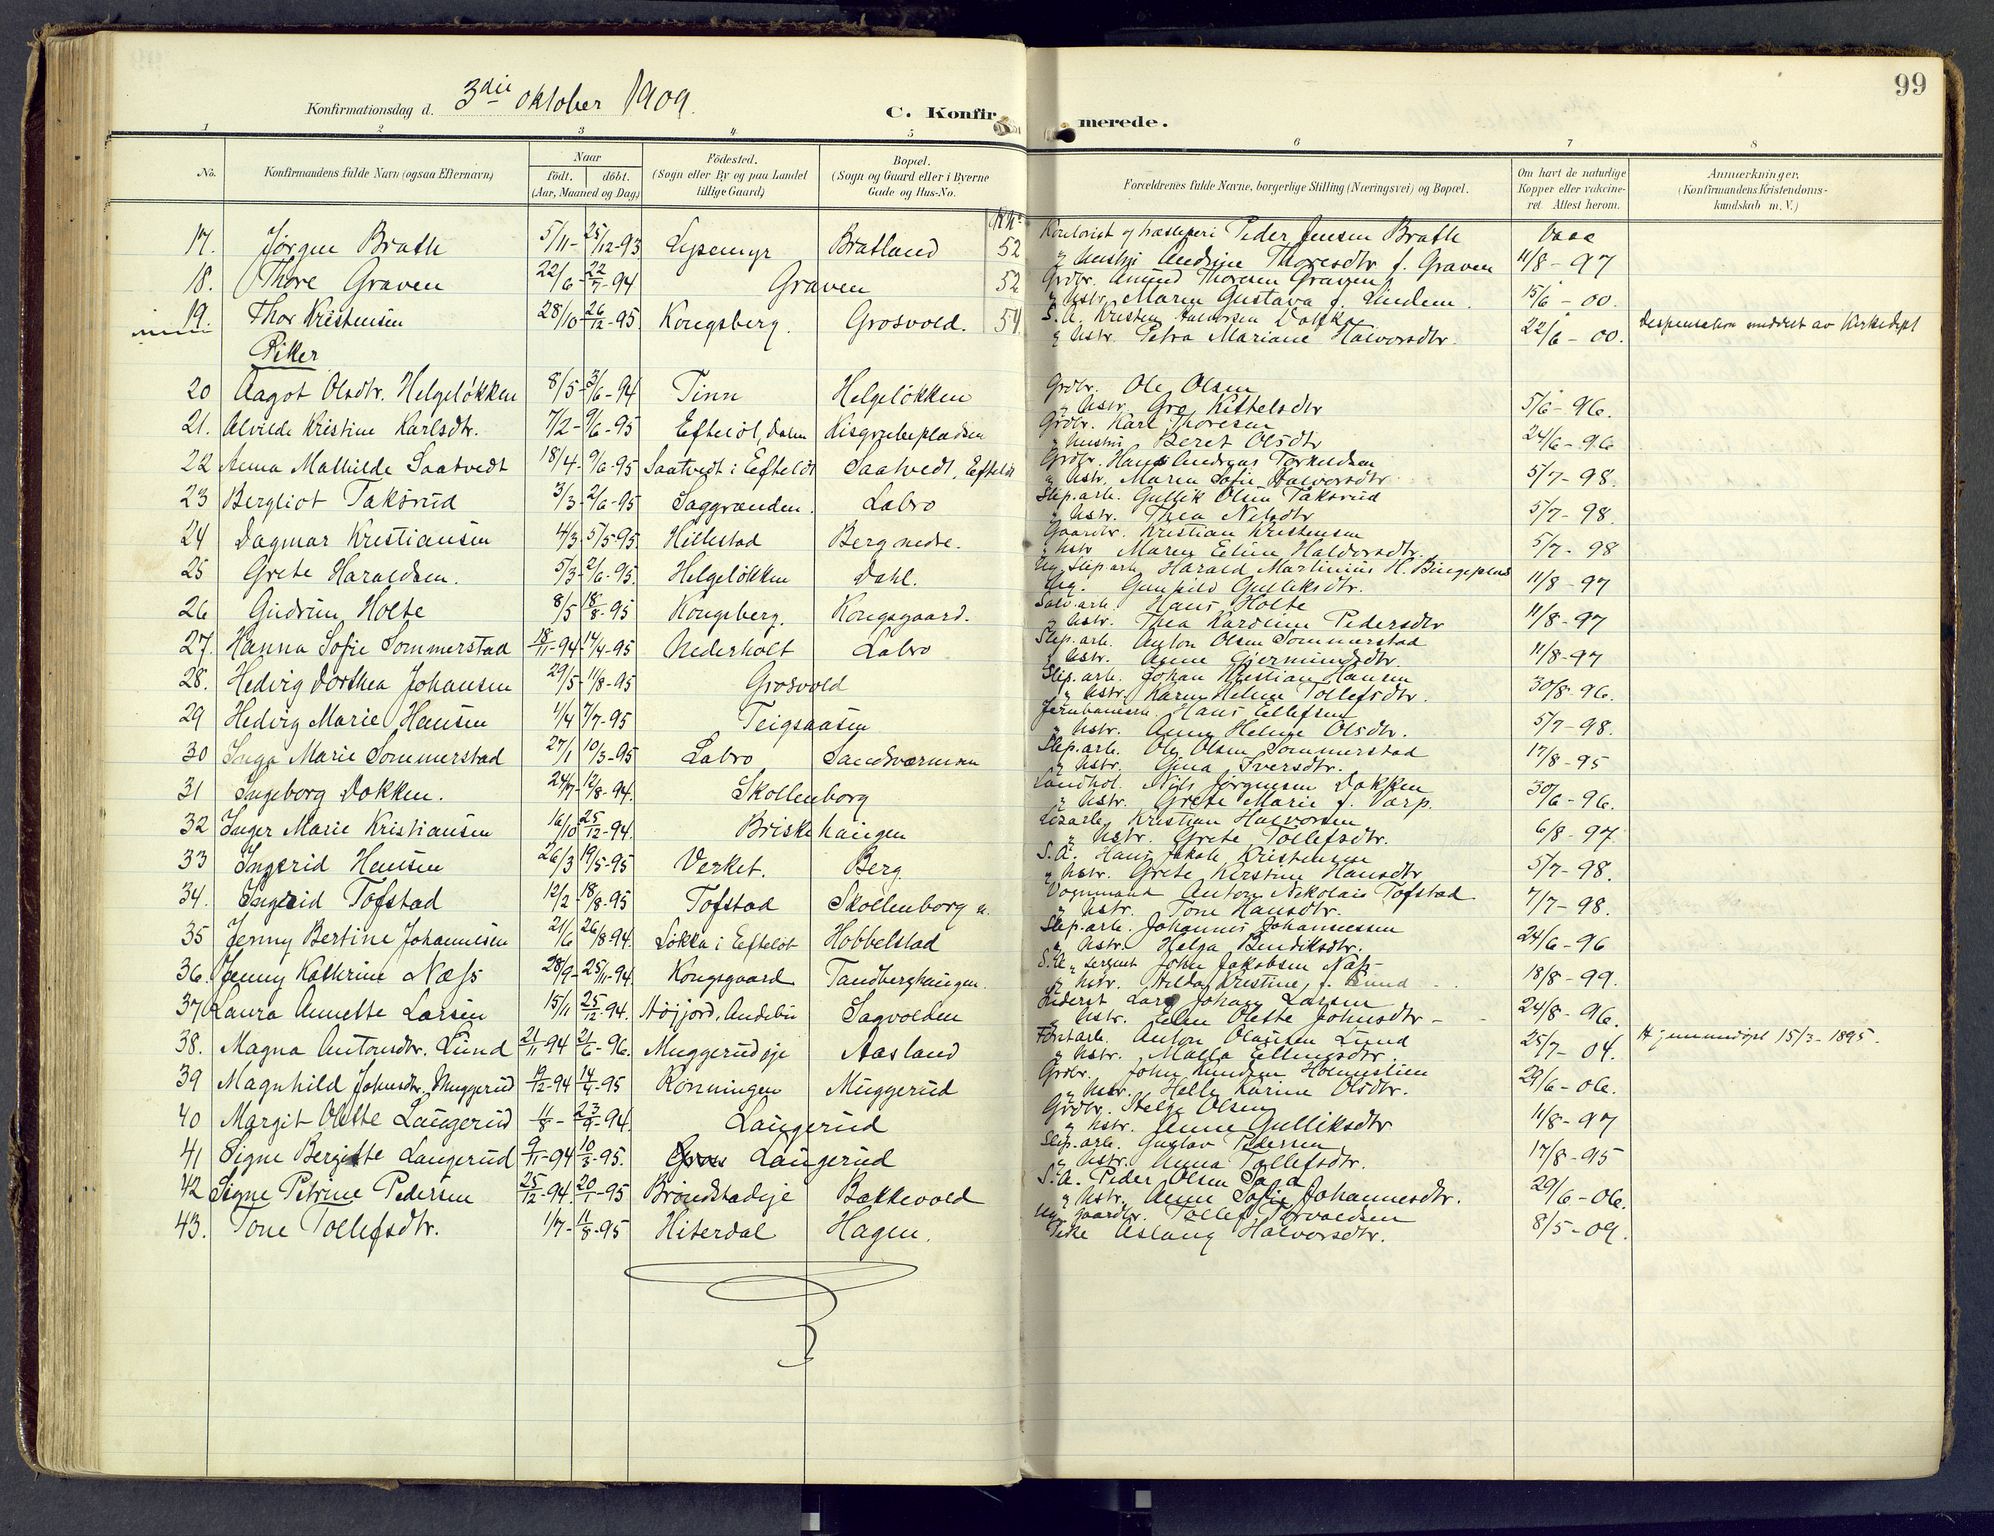 99
Konfirmationsdag d. 3die oktober 1909.
C. Konfirmerede.
1 2 3 4 5 6 7 8
No.
Konfirmandens fulde Navn (ogsaa Efternavn)
Naar
født. døbt.
(Aar, Maaned og Dag)
Fødested.
(Sogn eller By og paa Landet
tillige Gaard)
Bopæl.
(Sogn og Gaard eller i Byerne
Gade og Hus-No.
Forældrenes fulde Navne, borgerlige Stilling (Næringsvei) og Bopæl.
Om havt de naturlige
Kopper eller vakcine-
ret Attest herom.
Anmærkninger.
(Konfirmandens Kristendoms-
kundskab m. V.)
17. Jørgen Brath 5/11- 25/12-93 Lysemyr Bratland 52 Kontorist og Peder Jensen Brath
" Hustru Andrine Thoresdtr f. Graven 11/8-97
18. Thore Graven 22/6- 22/7-94 Graven 52 Grdbr. Amund Thoresen Graven
" Hstr. Maren Gustava f. Lindem. 15/6-00.
19. Thor Kristensen 28/10- 26/12-95 Kongsberg. Grosvold. 54 S.A. Kristen Halvorsen
" Hstr. Petra Mariane Halvorsdtr. 22/6-00. Despensation meddelt av Kirkedept
Piker
20 Aagot Olsdtr. Helgeløkken 8/5- 3/6-94 Tinn Helgeløkken Grdbr. Ole Olsen
" Hstr. Gro Kittelsdtr 5/6-96.
21. Alvilde Kristine Karlsdtr. 7/2- 9/6-95 Efteløt, Dalen Kisgrubepladsen Grdbr. Karl Thoresen
" Hustru Beret Olsdtr 24/6-96
22 Anna Mathilde Saatvedt 18/4- 9/6-95 Saatvedt i Efteløt Saatvedt, Efteløt Grdbr. Hans Andreas Torkildsen
" Hstr. Maren Sofie Halvorsdtr. 5/7-98.
23 Bergliot Taksrud 3/3- 2/6-95 Saggrænden. Labro Slip.arb. Gullik Olsen Taksrud
" Hstr. Thea Nilsdtr 5/7-98.
24 Dagmar Kristiansen 4/3- 5/5-95 Hillestad Berg nedre. Gaardbr. Kristian Kristensen
" Hstr Maren Eline Haldorsdtr. 5/7-98
25 Grete Haraldsen. 5/3- 2/6-95. Helgeløkken Dahl. Ug. Slip.arb Harald Martinius H. Bingeplads
Ug. Gunhild Gulliksdtr. 11/8-97
26 Gudrun Holte 8/5 18/8-95 Kongsberg. Kongsgaard. Sølv.arb. Hans Holte
" Hstr. Thea Karoline Pedersdtr 11/8-97
27. Hanna Sofie Sommerstad 18/11-94 14/4-95 Nederholt Labro Slip.arb. Anton Olsen Sommerstad
" Hstr. Anne Gjermundsdtr. 11/8-97
28. Hedvig Dorthea Johansen 29/5- 11/8-95 Grosvold Slip.arb. Johan Kristian Hansen
" Hstr. Karen Helene Tollefsdtr. 30/8-96.
29 Hedvig Marie Hansen 1/4 7/7-95 Teigsaasen Jernbanearb. Hans Ellefsen
" Hstr. Anne Helene Olsdtr. 5/7-98.
30 Inga Marie Sommerstad 27/1 10/3-95 Labro Sandsværmoen Slip.arb. Ole Olsen Sommerstad
" Hstr. Gina Iversdtr. 17/8-95
31 Ingeborg Dokken. 24/7- 12/8-94. Skollenborg Landhdl. Nils Jørgensen Dokken
" Hstr. Grete Marie f. Varp. 30/6-96.
32 Inger Marie Kristiansen 16/10 25/12-94. Briskehaugen Kristian Halvorsen
" Hstr. Grete Tollefsdtr. 6/8-97
33 Ingerid Hansen 26/3 19/5-95 Verket. Berg S.A. Hans Jakob Kristensen
" Hstr. Grete Kirstine Hansdtr 5/7-98.
34. Ingerid Tofstad 12/2 18/8-95 Tofstad Skollenborg n. Vognmand Anton Nikolais Tofstad
" Hstr. Tone Hansdtr. 7/7-98.
35 Jenny Bertine Johannesen 21/6 26/8-94. Løkka i Efteløt Hobbelstad Slip.arb. Johannes Johannessen
" Hstr. Helga Bendiksdtr. 24/6-96
36. Jenny Kathrine Næss 28/9- 25/11-94. Kongsgaard Tandberghaugen. S.A., sergent John Jakobsen Næss
" Hstr. Hilda Kristine f. Lund 18/8-99.
37 Laura Annette Larsen 15/11 25/12-94. Høijord, Andebu Sagvolden Lars Johan Larsen
" Hstr. Elen Olette Johnsdtr - 24/8-96.
38. Magna Antonsdtr. Lund 21/11-94 21/6-96. Muggerudeje Aasland Forstarb. Anton Olausen Lund
" Hstr. Malla Ellingsdtr. 25/7-04. Hjemmedøpt 15/3-1895.
39 Magnhild Johnsdtr. Muggerud 19/12-94 14/4-95 Rønningen Muggerud Grdbr. John Knudsen Holmestien
" Hstr. Helle Karine Olsdtr. 29/6-06.
40 Margit Olette Laugerud 11/8- 23/9-94. Laugerud Grdbr. Helge Olsen
" Hstr. Jenne Gulliksdtr 11/8-97
41 Signe Bergitte Laugerud 9/11-94 10/3-95. Laugerud Slip.arb. Gustav Pedersen
" Hstr. Anna Tollefsdtr. 17/8-95
42 Signe Petrine Pedersen 25/12-94. 20/1-95 Brøndstadeje Bakkevold S.A. Peder Olsen Sand
" Hstr. Anne Sofie Johannesdtr. 29/6-06.
43. Tone Tollefsdtr. 1/7- 11/8-95 Hiterdal Hagen. Ug. gaardbr. Tollef Torvaldsen
Pike Aslaug Halvorsdtr. 8/5-09.